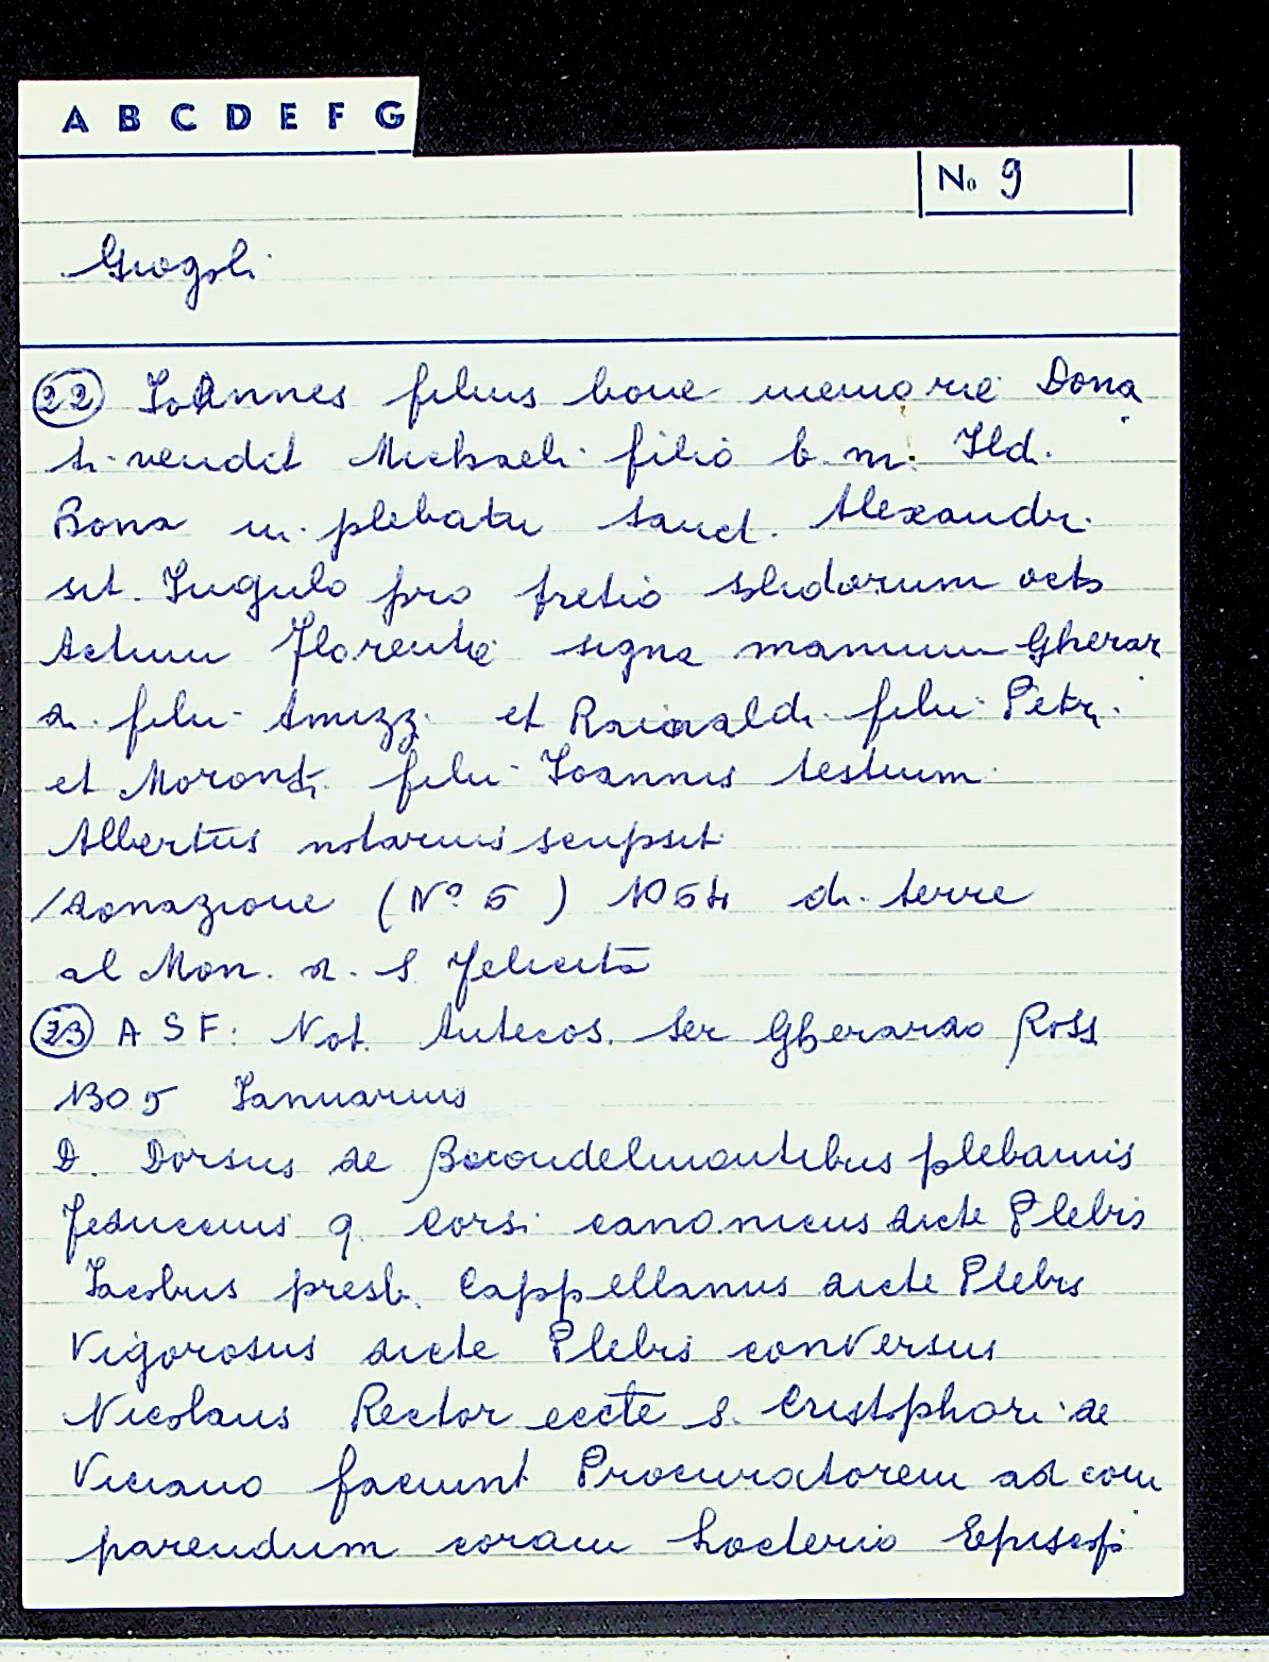 A B C D E F G
No 9
Giogoli
22 Ioannes filius bone memorie Dona
ti vendit Michaeli filio b. m. Ild.
Bona in plebatu Sanct. Alexandri
sit. Iugulo pro pretio solidorum octo
Actum Florentie signa manuum Gherar
di filii Amizzi et Rainaldi filii Petri
et Moronti filii Ioannis testium
Albertus notarius scripsit
/donazione (N° 5) 1054 di terre
al Mon. di S Felicita
23 A S F: Not. Antecos. Ser Gherardo Rossi
1305 Ianuarius
D. Dorsus de Bocondelmontibus plebanus
Feduccius q. Corsi canonicus dicte Plebis
Iacobus presb. Cappellanus dicte Plebis
Vigorosus dicte Plebis conversus
Nicolaus Rector eccte S. Cristophori de
Viciano faciunt Procuratorem ad com
parendum coram Locterio Episcopi